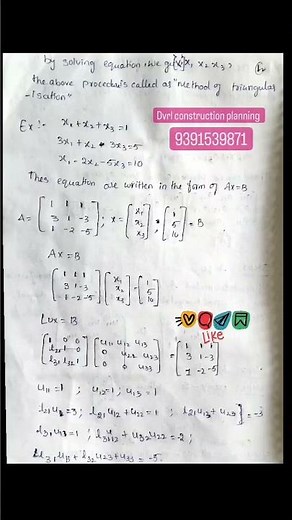 by solving equation we get x₁ x₂ x₃
the above procedure is called as "method of triangular
-isation"
Dvrl construction planning
9391539871
Ex :-
x₁ + x₂ + x₃ = 1
3x₁ + x₂ - 3x₃ = 5
x₁ - 2x₂ - 5x₃ = 10
Thes equation are written in the form of Ax=B
A = [1 1 1; 3 1 -3; 1 -2 -5] ; x = [x₁; x₂; x₃] ; [1; 5; 10] = B
Ax = B
[1 1 1; 3 1 -3; 1 -2 -5] [x₁; x₂; x₃] = [1; 5; 10]
LIKE
Lux = B
[1 0 0; l₂₁ 1 0; l₃₁ l₃₂ 1] [u₁₁ u₁₂ u₁₃; 0 u₂₂ u₂₃; 0 0 u₃₃] = [1 1 1; 3 1 -3; 1 -2 -5]
u₁₁ = 1 ; u₁₂ = 1 ; u₁₃ = 1
l₂₁u₁₁ = 3 ; l₂₁u₁₂ + u₂₂ = 1 ; l₂₁u₁₃ + u₂₃ = -3
l₃₁u₁₁ = 1 ; l₃₁u₁₂ + l₃₂u₂₂ = -2 ;
l₃₁u₁₃ + l₃₂u₂₃ + u₃₃ = -5